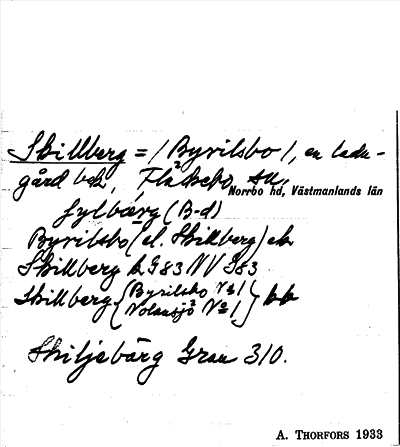 Skillberg = /Byrilsbo/, en ladu-
gård och, Flåbebo, Su,
Norrbo hd, Västmanlands län
fylbærg (B-d)
Byrilsbo (el. Skillberg) ek
Skillberg k G83 NV G83
Skillberg {Byrilsbo No 1 Nolansjö No 1} bk
Skiljebärg Grau 310.
A. THORFORS 1933